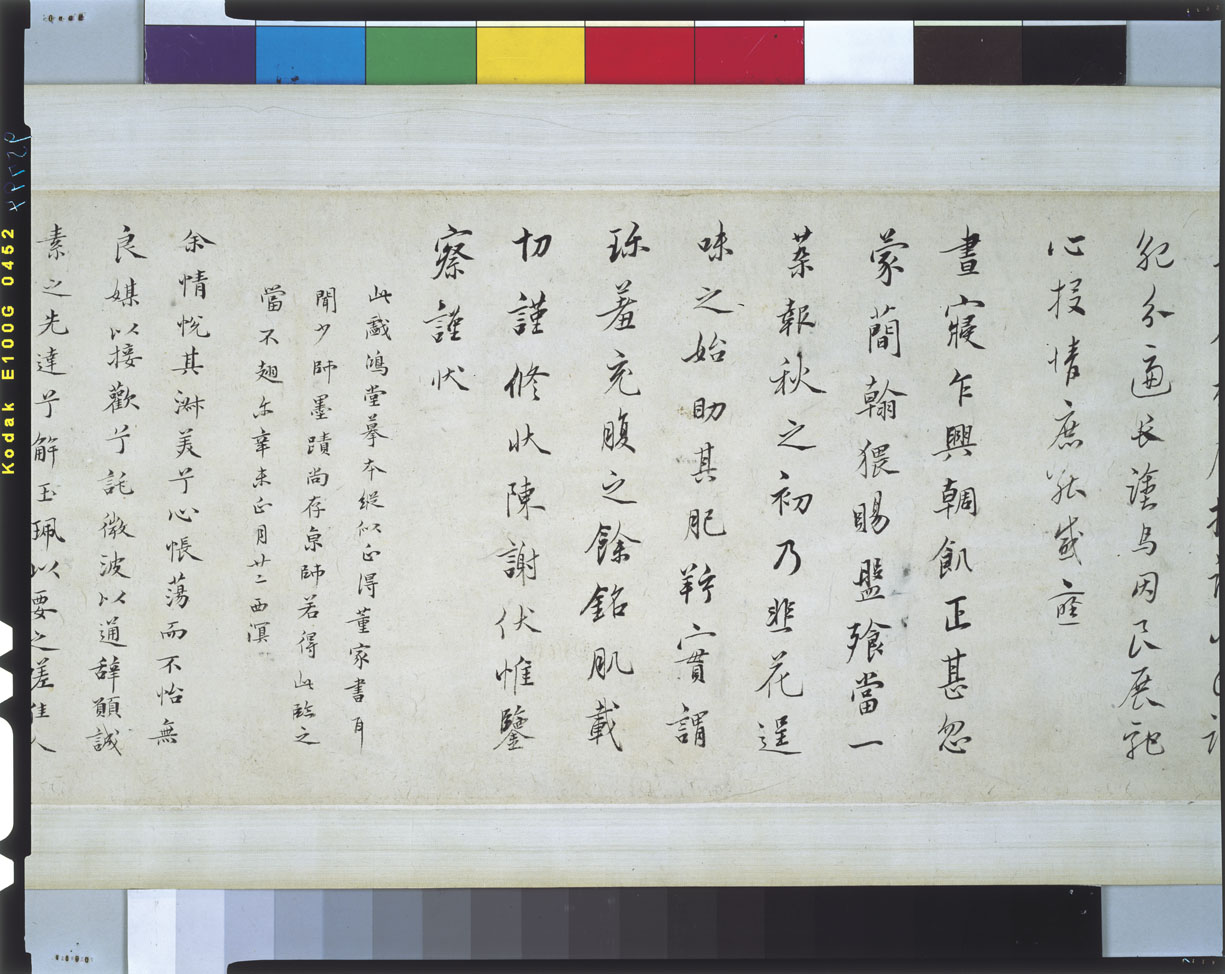 心投情庶能感應
晝寢乍興輖飢正甚忽
蒙蕳翰猥賜盤飱當一
葉報秋之初乃韭花逞
味之始助其肥羜實謂
珎羞充腹之餘銘肌載
切謹修狀陳謝伏惟鑒
察謹狀
此戲鴻堂摹本縱似正得董家書耳
聞少師墨蹟尚存京師若得此臨之
當不翅尔辛未正月廿二西溟
余情悅其淑美兮心悵蕩而不怡無
良媒以接歡兮託微波以通辞願誠
素之先達兮解玉珮以要之嗟佳人
Kodak E100G 0452